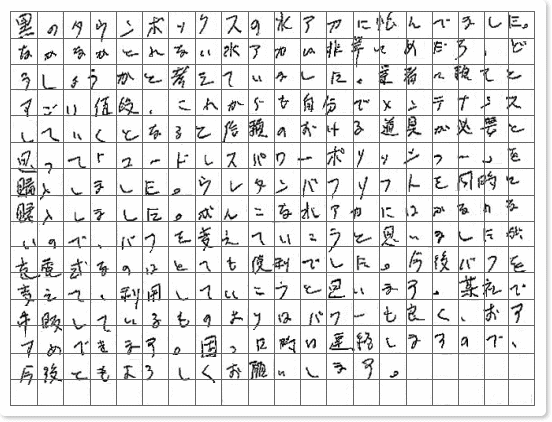 黒のタウンボックスの水アカに悩んでました。
なかなかとれない水アカい非常にめだつ、ど
うしようかと考えていました。業者に頼むと
すごい値段、これからも自分でメンテナンス
していくとなると信頼のおける道具が必要と
思ってコードレスパワーポリッシャー。を
購入しました。ウレタンバフソフトも同時に
購入しました。がんこな水アカにはかなわな
いので、バフを変えていこうと思いましたが
充電式なのはとても便利でした。今後バフを
変えて、利用していこうと思います。葉社で
市販しているものよりはパワーも良く、おす
すめできます。困った時は連絡しますので、
今後ともよろしくお願いします。